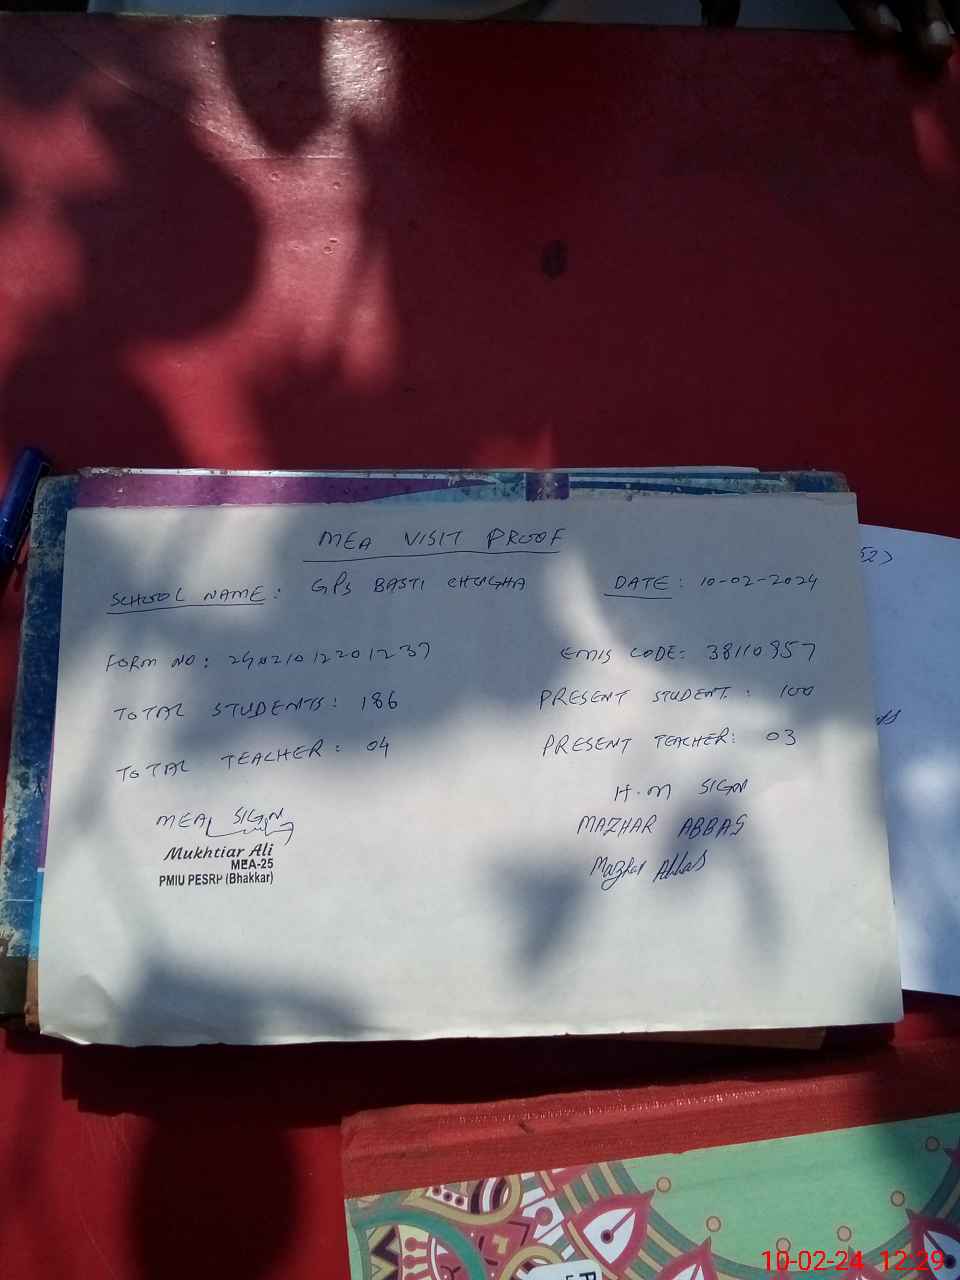 MEA VISIT PROOF
SCHOOL NAME: GPS BASTI CHUGHA DATE: 10-02-2024
FORM NO: EMIS CODE: 38110957
TOTAL STUDENTS: 186 PRESENT STUDENT: 100
TOTAL TEACHER: 04 PRESENT TEACHER: 03
MEA SIGN H.M SIGN
Mukhtiar Ali MAZHAR ABBAS
MEA-25 Mazhar Abbas
PMIU PESRP (Bhakkar)
10-02-24 12:29